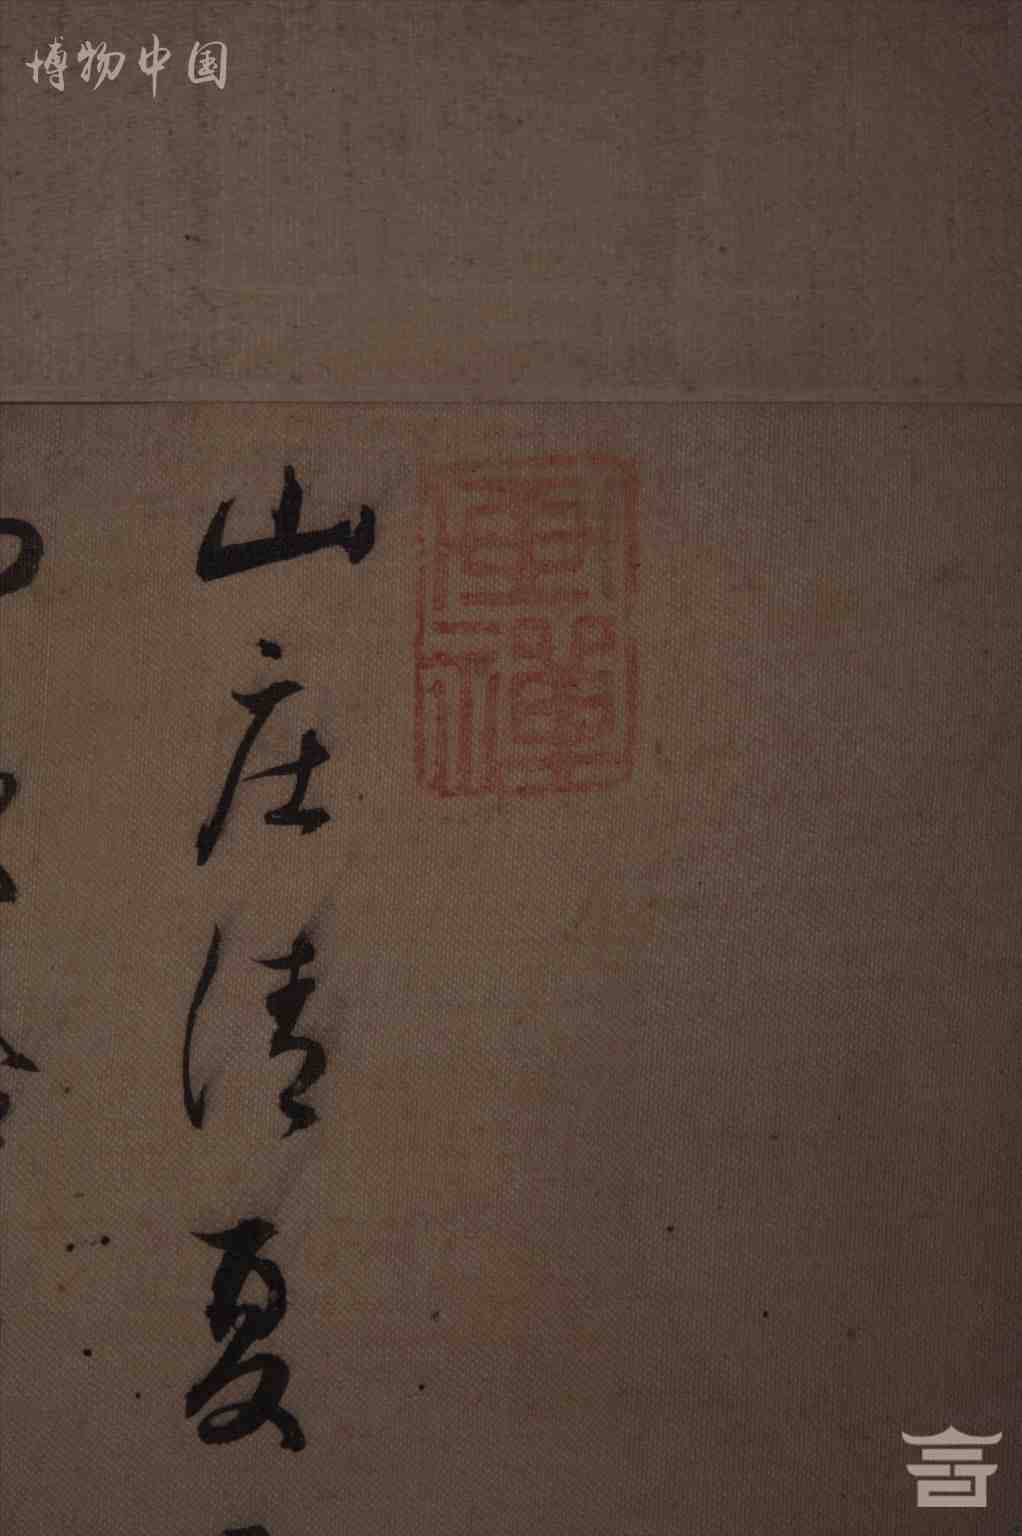 博物中国
畫禪
山庄清夏